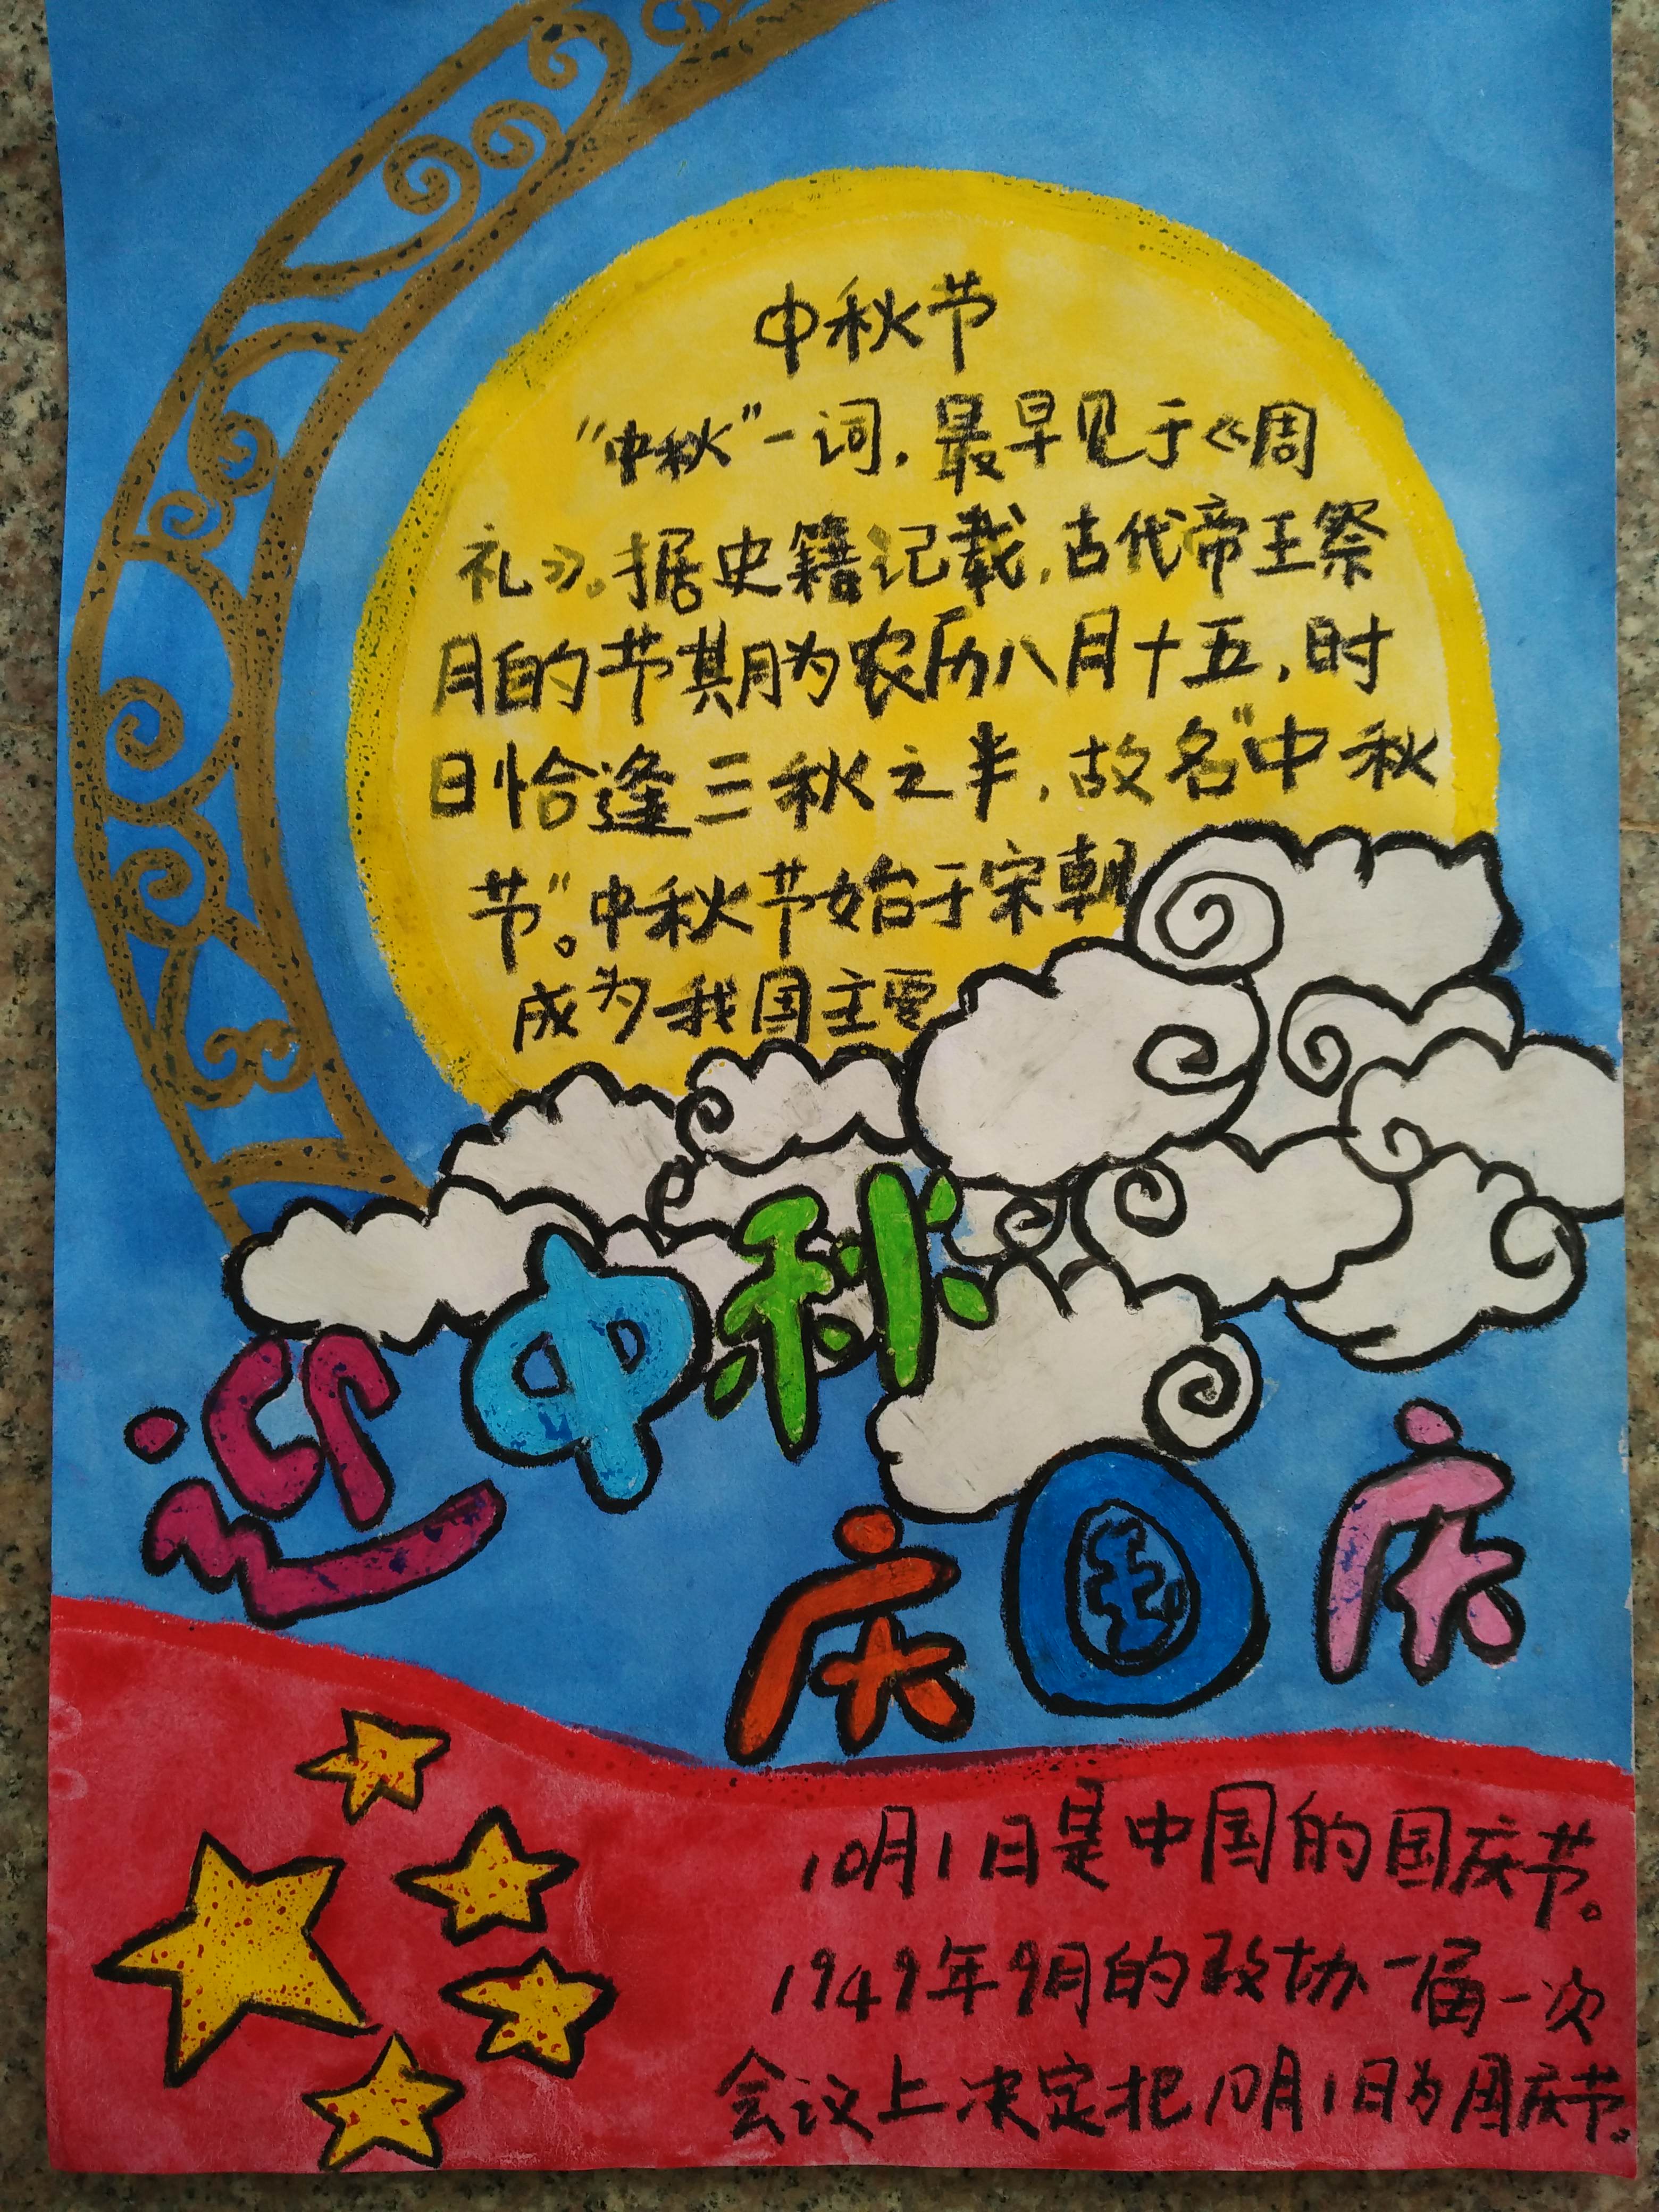 中秋节
“中秋”一词，最早见于《周
礼》。据史籍记载，古代帝王祭
月的节期为农历八月十五，时
日恰逢三秋之半，故名“中秋
节”。中秋节始于宋朝
成为我国主要
迎中秋
庆国庆
10月1日是中国的国庆节。
1949年9月的政协一届一次
会议上决定把10月1日为国庆节。